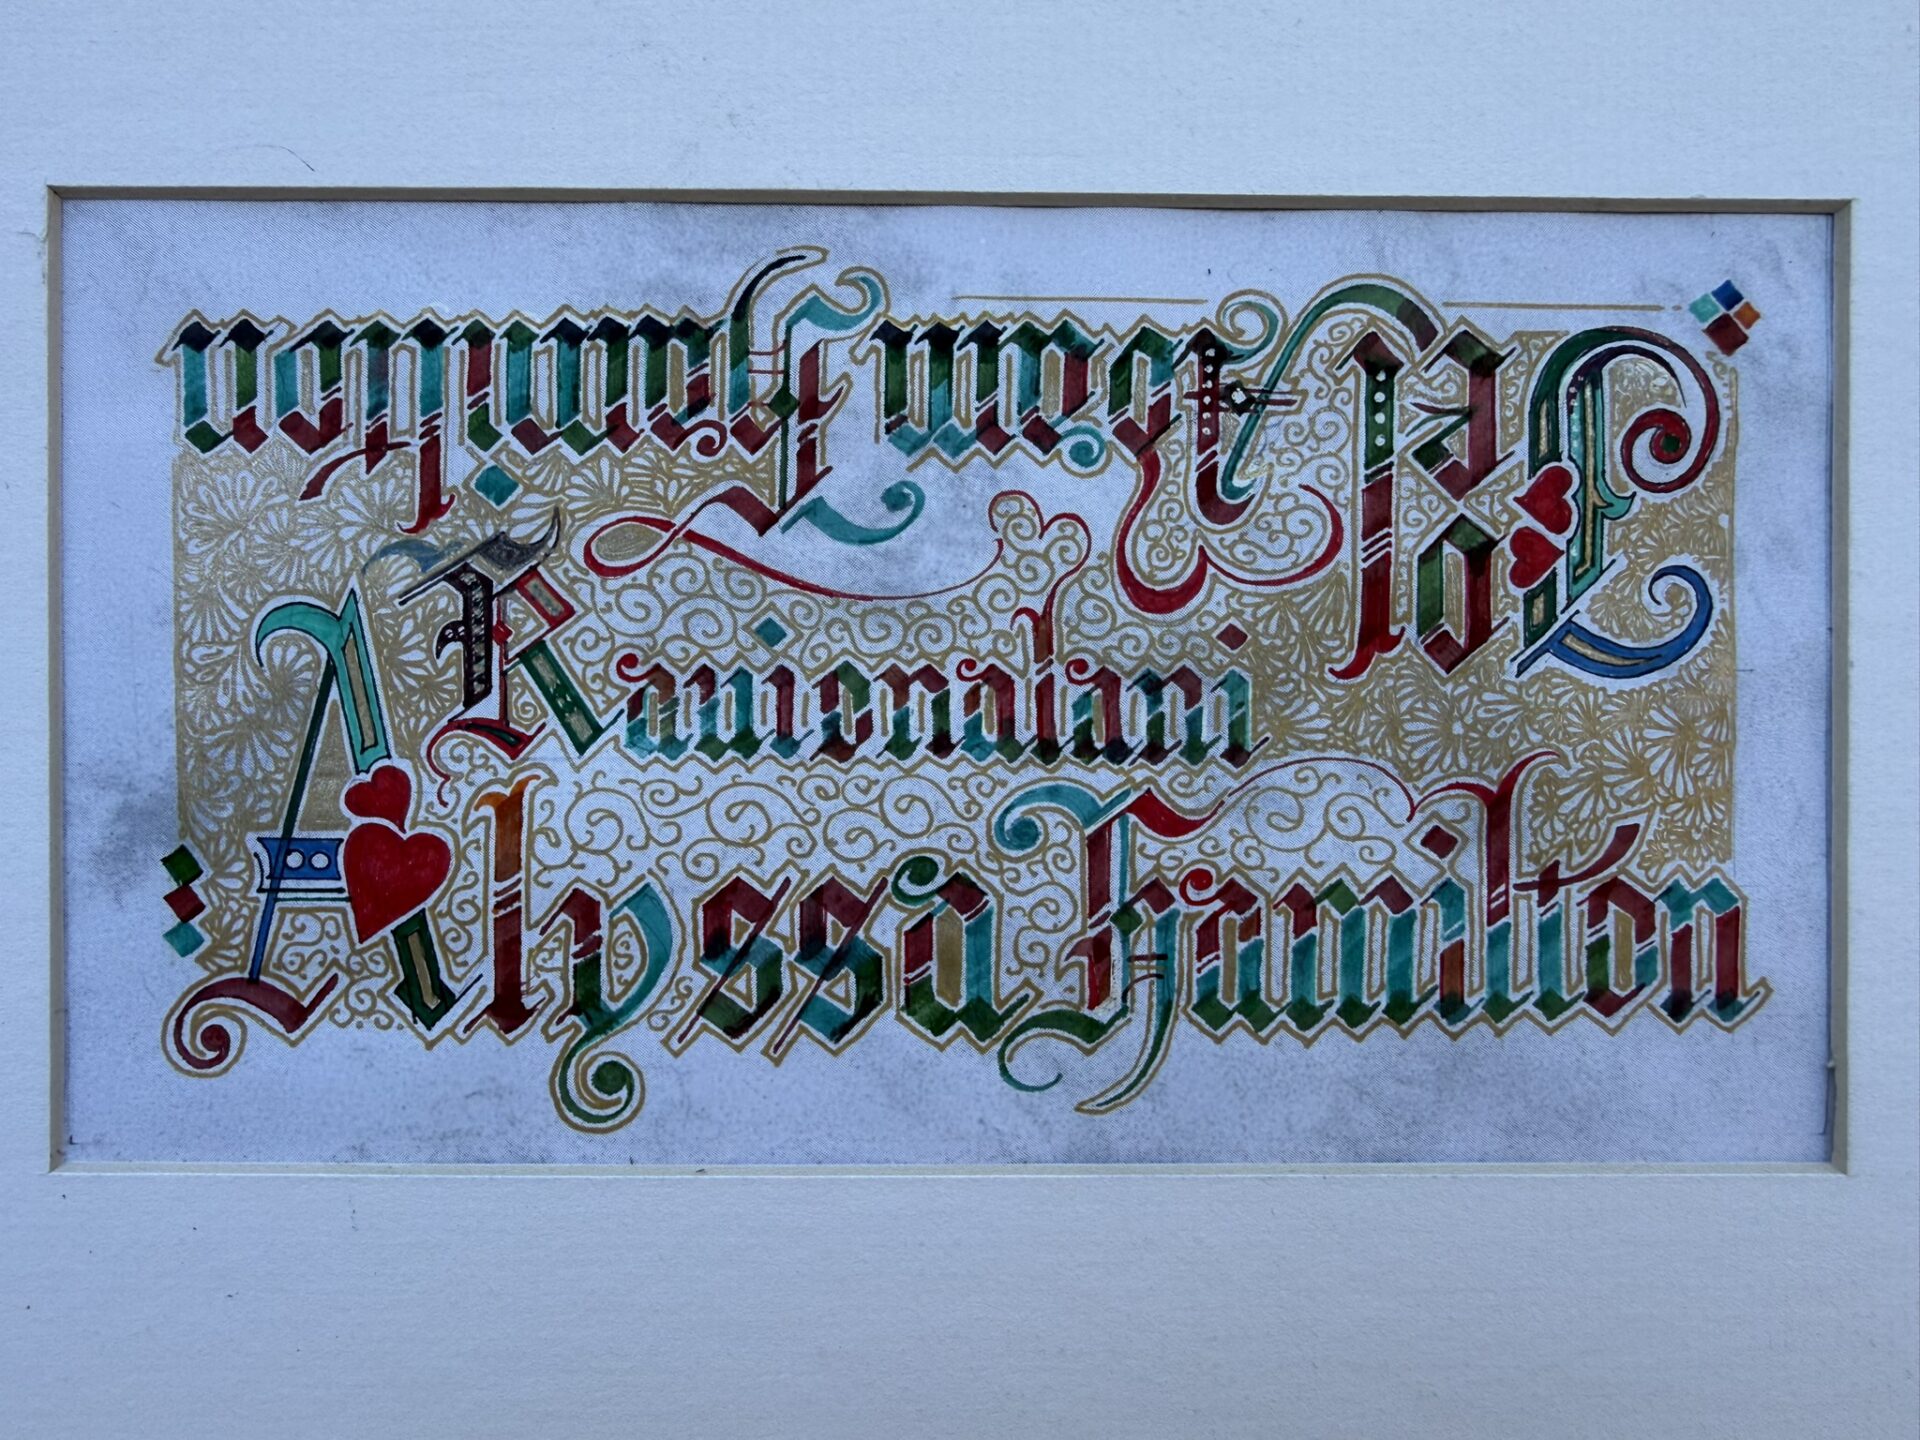 Joel Adam Hamilton
Kauionalani
Alyssa Hamilton